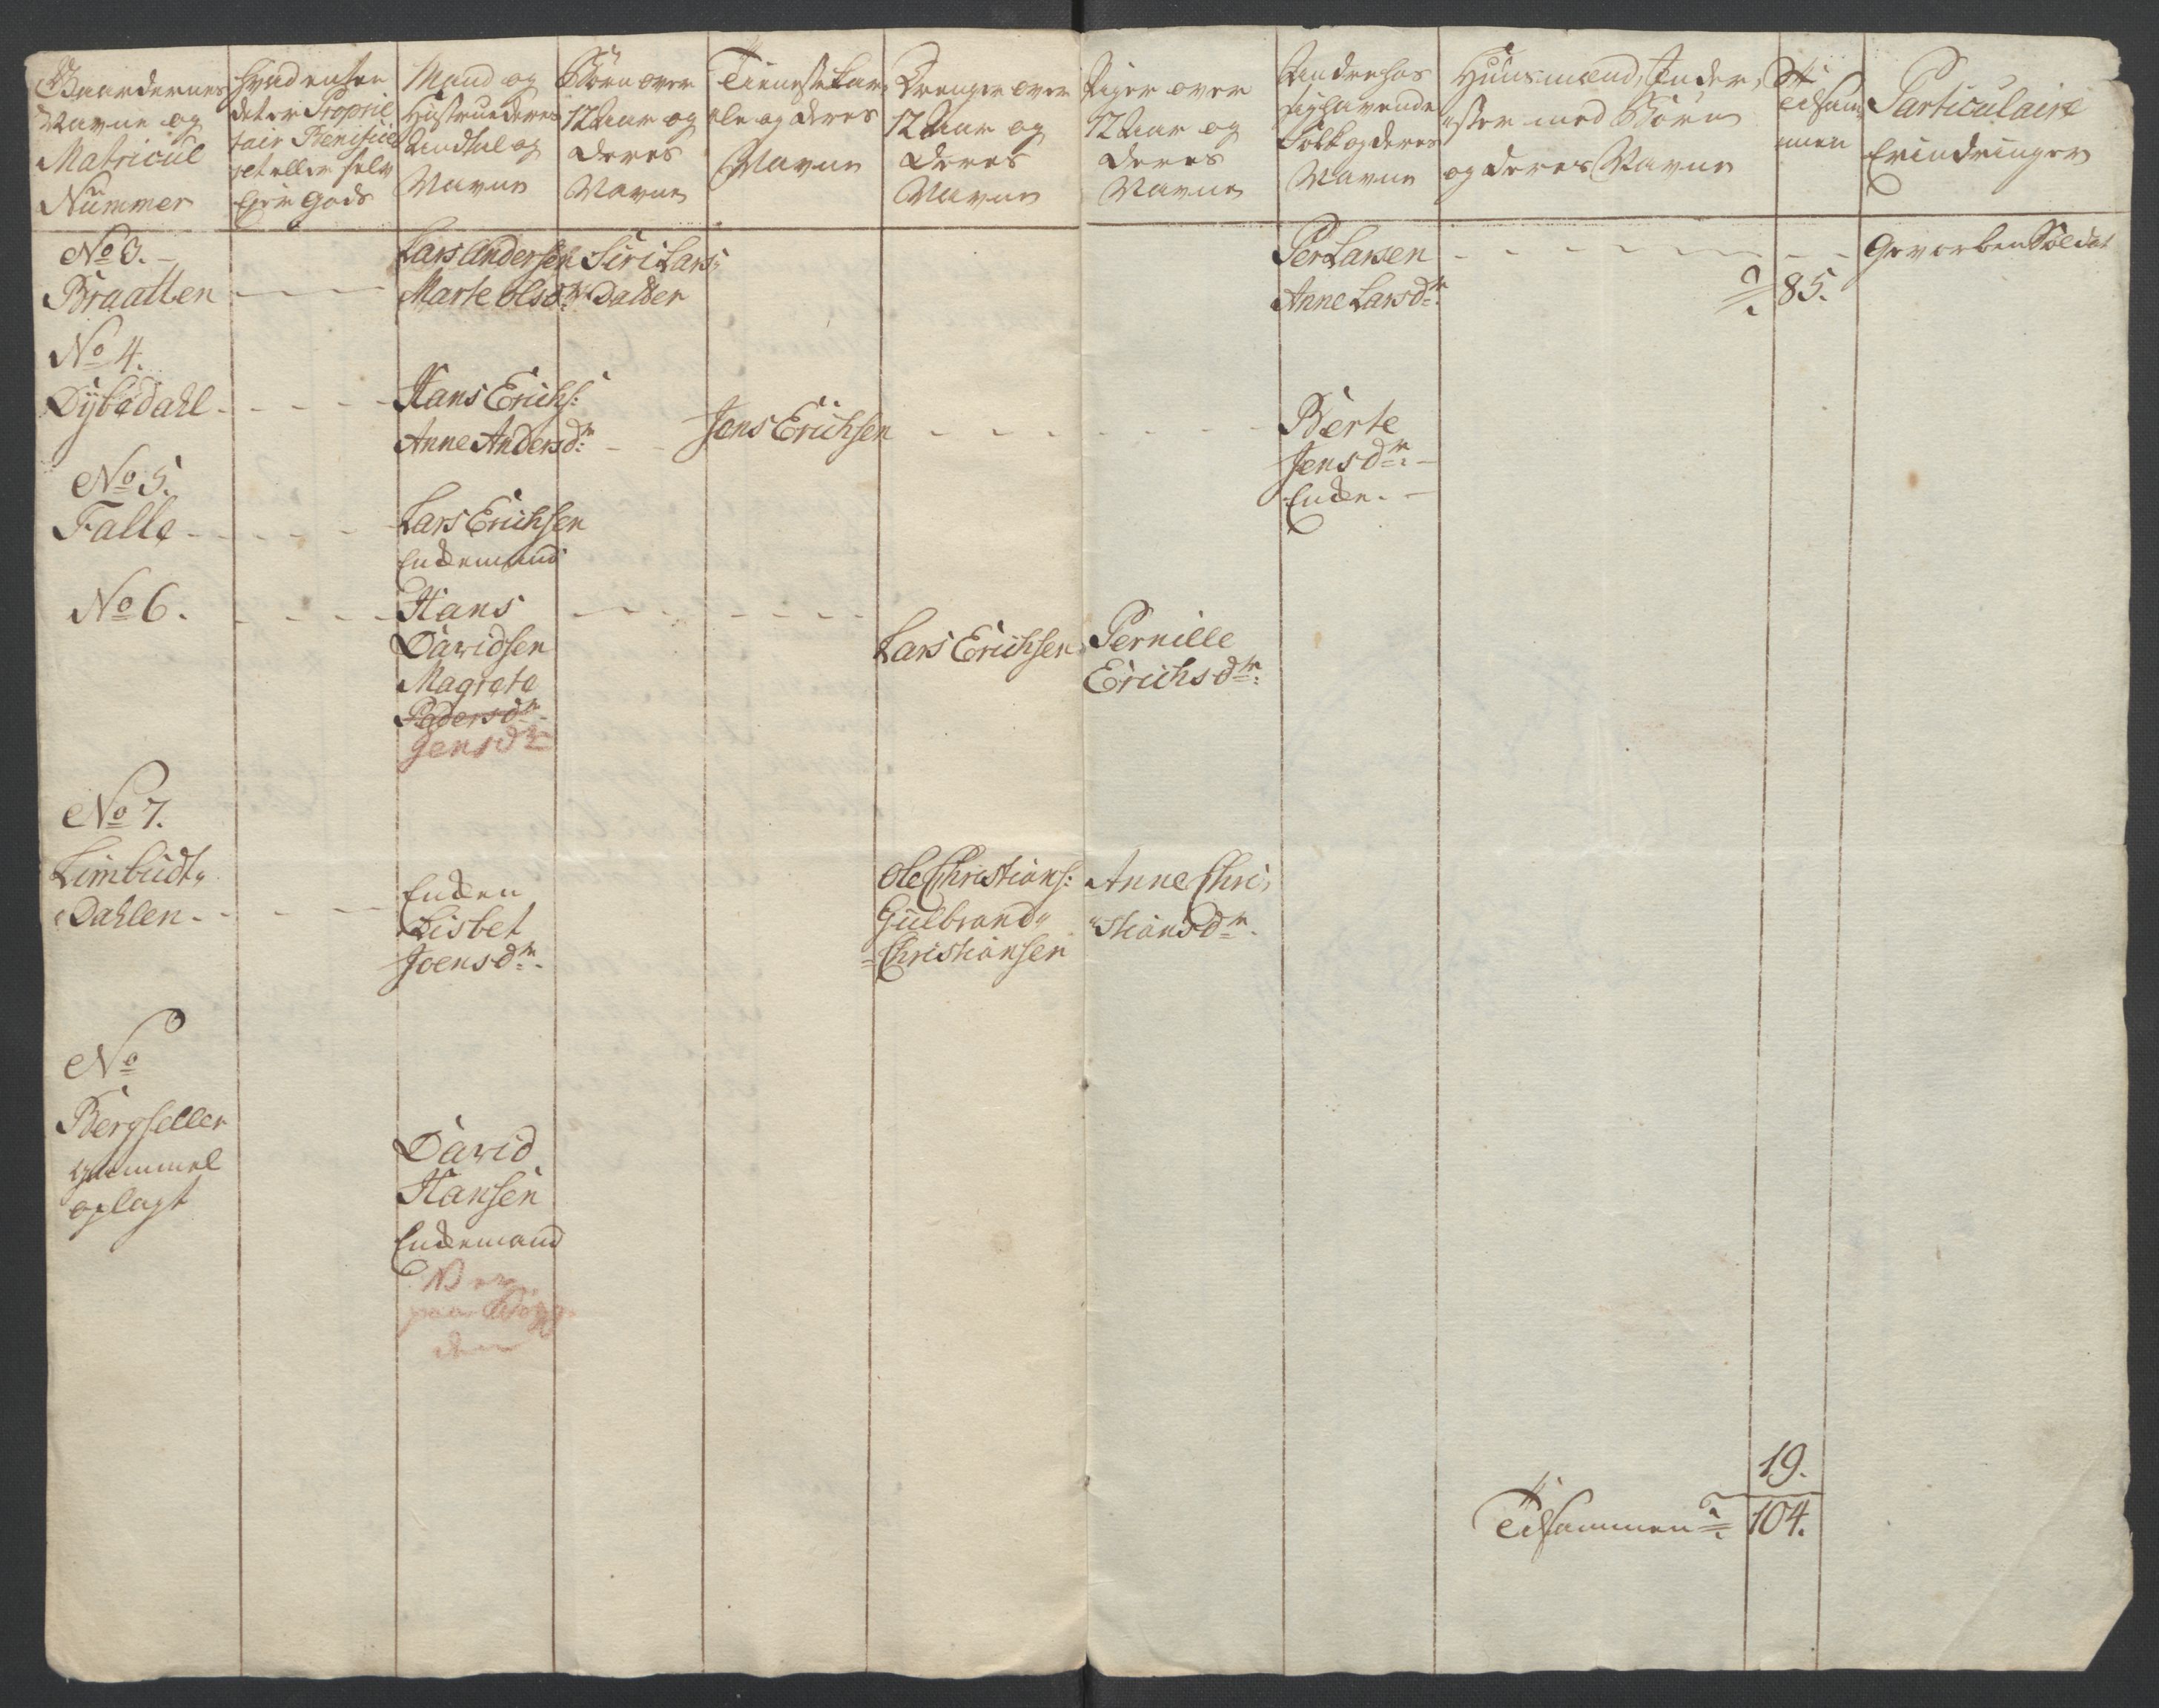 Gaardernes
Navne og
Matricul
Nummer
Hvad enten
det er Proprie
tair Benifice
ret eller Selv
Ejer Gods
Mand og
Hustrue deres
Andtal og
Navne
Børn over
12 Aar og
deres
Navne
Tieneste Kar
ele og deres
Navne
Drenge over
12 Aar og
deres
Navne
Piger over
12 Aar og
deres
Navne
Andre hos
sig havende
Folk og deres
Navne
Huusmænd, Inder,
ster med Børn
og deres Navne
Til sam
men
Particulaire
Erindringer
No 3.
Braatten
Lars Andersen
Marte Olsdr
Siri Lars
Datter
Per Larsen
Anne Larsdr:
85.
Gevorben Soldat
No 4.
Dybedahl
Hans Erichs:
Anne Andersdr:
Jens Erichsen
Berte
Jensdr:
Enke.
No 5.
Falle
Lars Erichsen
Enkemand
No 6.
Hans
Davidsen
Magrete
Pedersdr
Jensdr
Lars Erichsen
Pernille
Erichsdr:
No 7.
Limbudt,,
Dahlen
Enken
Lisbet
Joensdr:
Ole Christians:
Gulbrand,,
=Christiansen
Anne Chri,
"stiansdr.
No
Bergsellen
gammel
oplagt
David
Hansen
Enkemand
19.
Tilsammen 104.